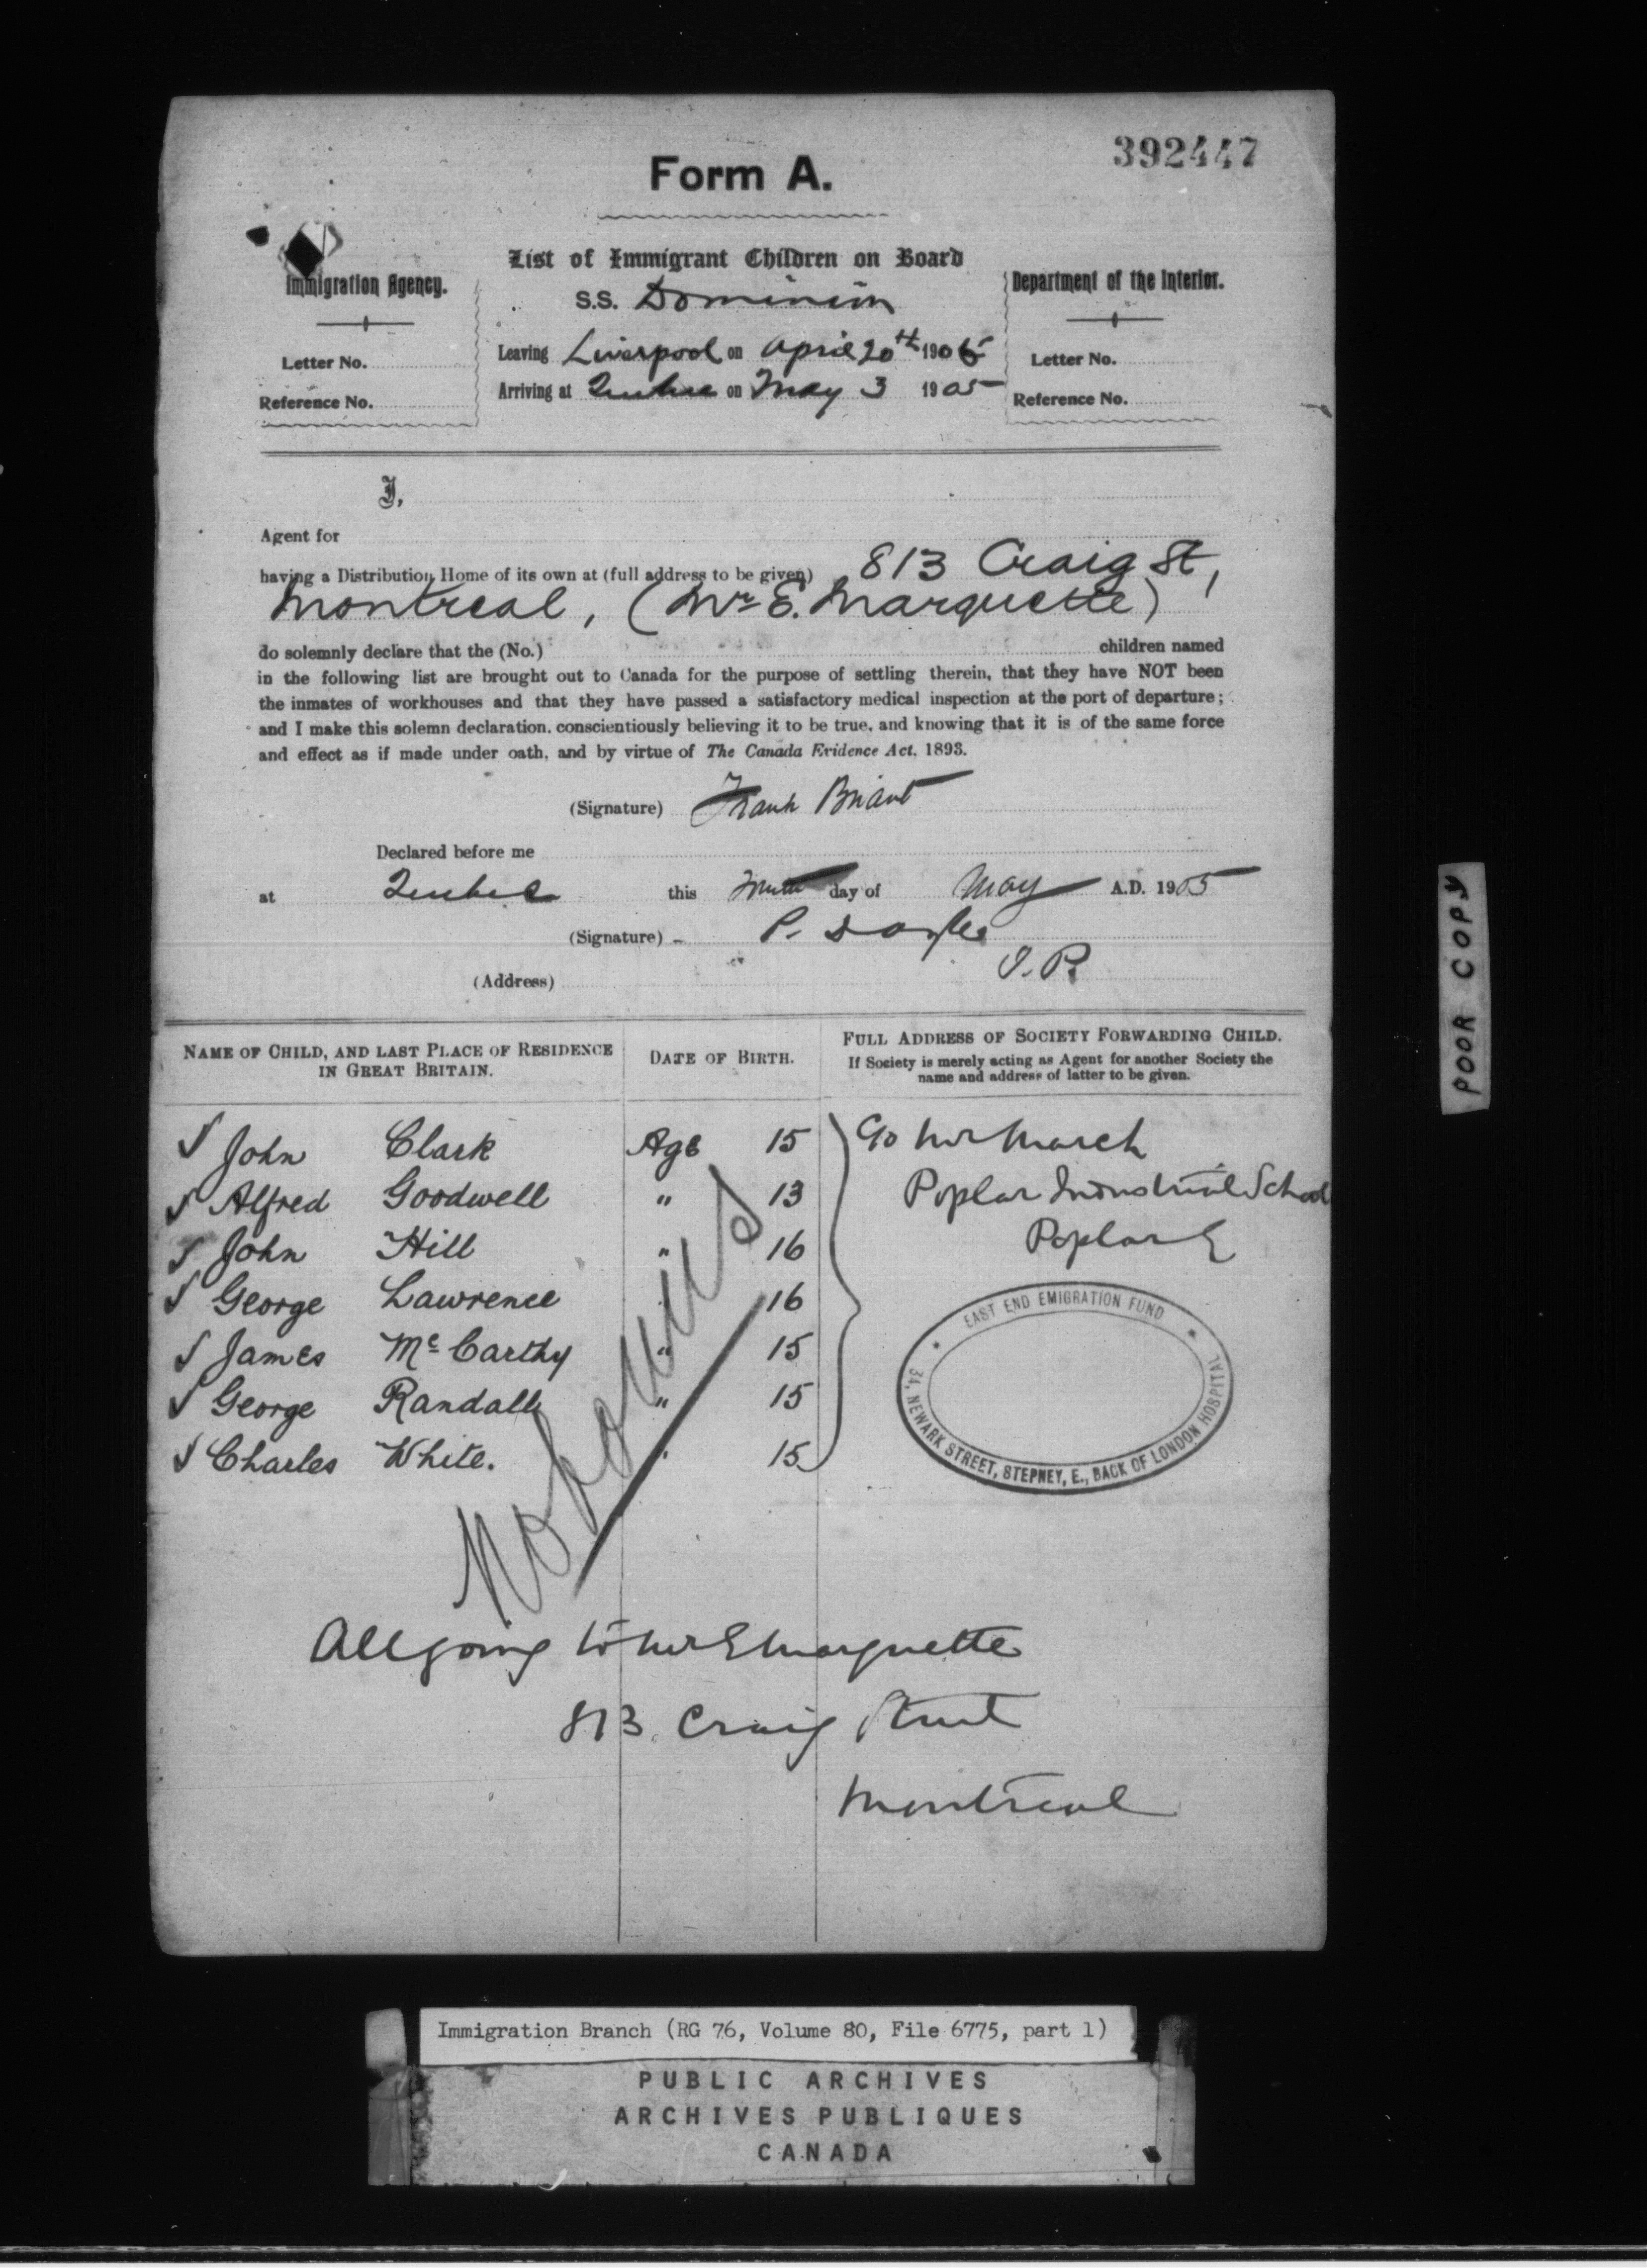 392447
Form A.
List of Immigrant Children on Board
S.S. Dominion
Immigration Agency.
Letter No.
Reference No.
Leaving Liverpool on April 20th 1905
Arriving at Quebec on May 3 1905
Department of the Interior.
Letter No.
Reference No.
I,
Agent for
having a Distribution Home of its own at (full address to be given) 813 Craig St,
Montreal, (Mr E. Marquette)
do solemnly declare that the (No.) children named
in the following list are brought out to Canada for the purpose of settling therein, that they have NOT been
the inmates of workhouses and that they have passed a satisfactory medical inspection at the port of departure;
and I make this solemn declaration, conscientiously believing it to be true, and knowing that it is of the same force
and effect as if made under oath, and by virtue of The Canada Evidence Act, 1893.
(Signature) Frank Briant
Declared before me
at Quebec this day of May A.D. 1905
(Signature) P. Doyle
J.P.
(Address)
NAME OF CHILD, AND LAST PLACE OF RESIDENCE IN GREAT BRITAIN.
DATE OF BIRTH.
FULL ADDRESS OF SOCIETY FORWARDING CHILD.
If Society is merely acting as Agent for another Society the
name and address of latter to be given.
John Clark Age 15
Alfred Goodwell " 13
John Hill " 16
George Lawrence " 16
James McCarthy " 15
George Randall " 15
Charles White. " 15
Mr March
Poplar Industrial School
Poplar E
EAST END EMIGRATION FUND
34, NEWARK STREET, STEPNEY, E., BACK OF LONDON HOSPITAL
No bonus
All going to Mr E Marquette
813 Craig Street
Montreal
POOR COPY
Immigration Branch (RG 76, Volume 80, File 6775, part 1)
PUBLIC ARCHIVES
ARCHIVES PUBLIQUES
CANADA